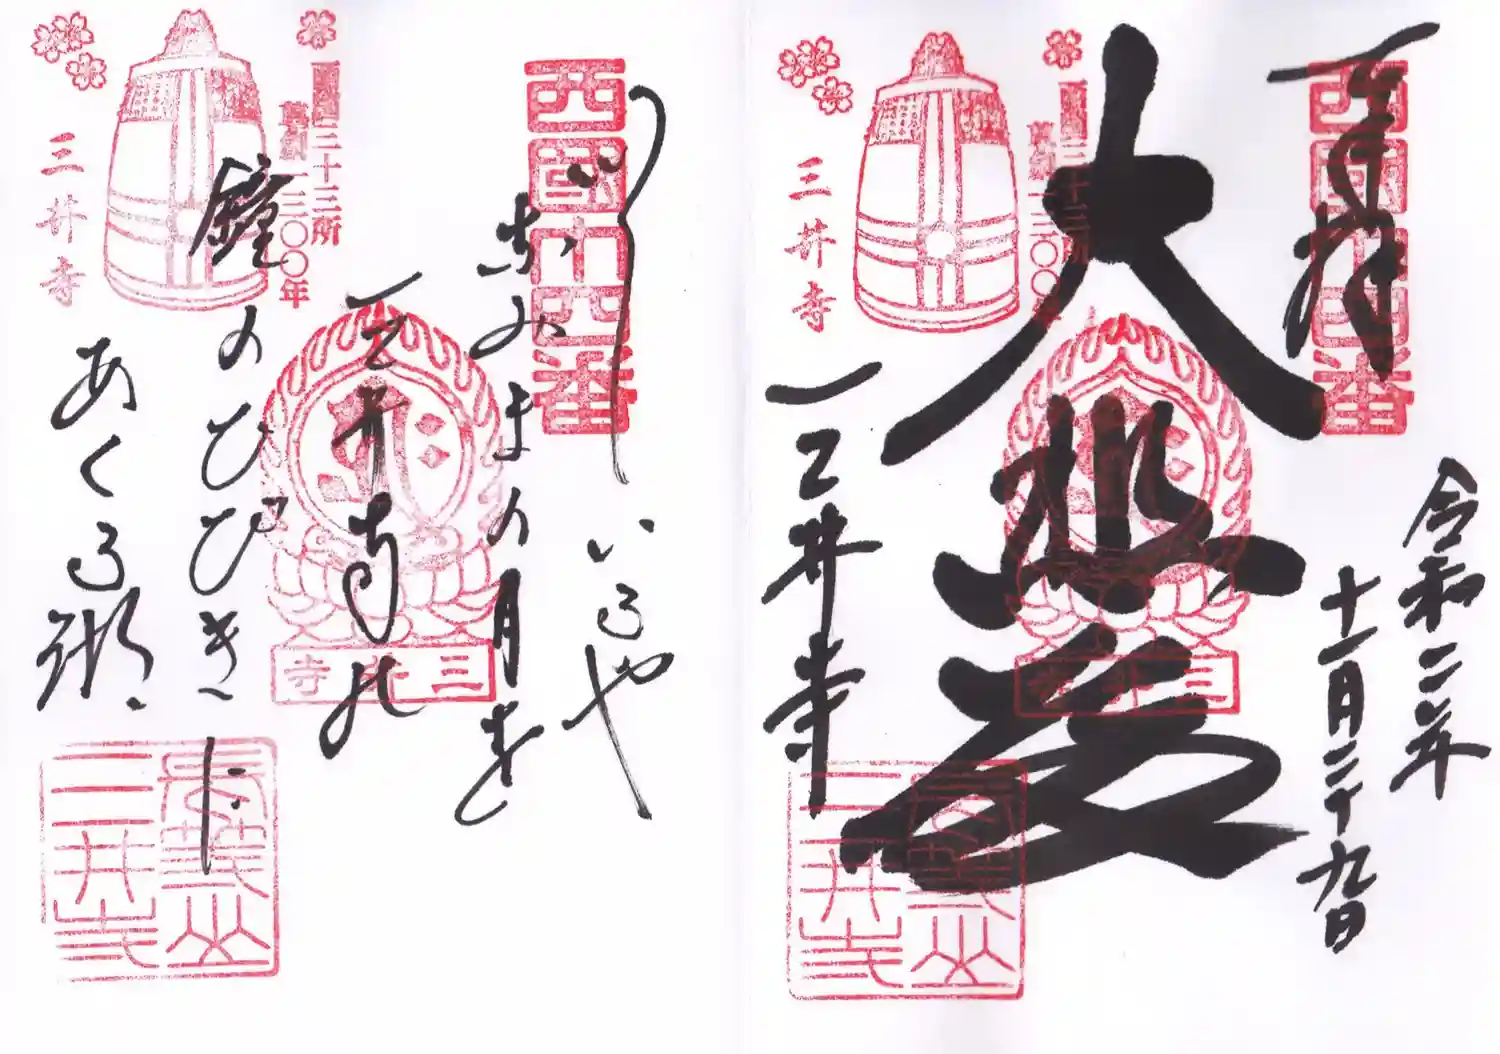 奉拝
西國十四番
令和二年
十一月二十九日
大悲殿
三井寺
西国三十三所
草創一三〇〇年
三井寺
三井寺
長等山
三井寺
西國十四番
いで
いるや
なみまの月を
三井寺の
鐘のひびきに
あくる湖
西国三十三所
草創一三〇〇年
三井寺
三井寺
長等山
三井寺